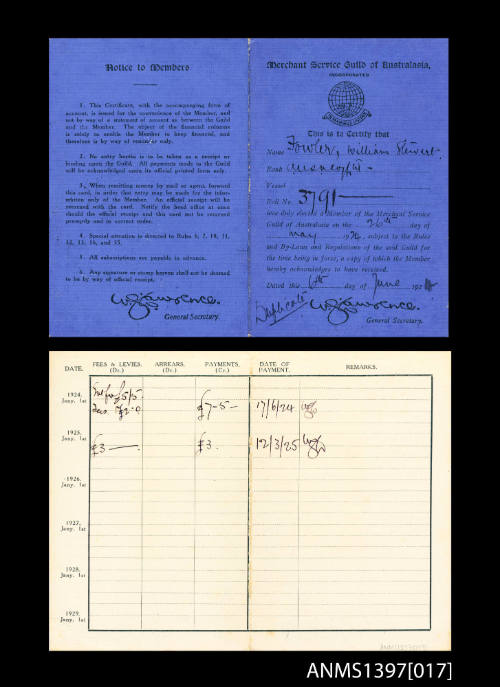 Notice to Members
1. This Certificate, with the accompanying form of
account, is issued for the convenience of the Member, and
not by way of a statement of account as between the Guild
and the Member. The object of the financial columns
is solely to enable the Member to keep financial, and
therefore is by way of reminder only.
2. No entry herein is to be taken as a receipt or
binding upon the Guild. All payments made to the Guild
will be acknowledged upon its official printed form only.
3. When remitting money by mail or agent, forward
this card, in order that entry may be made for the infor-
mation only of the Member. An official receipt will be
returned with the card. Notify the head office at once
should the official receipt and this card not be returned
promptly and in correct order.
4. Special attention is directed to Rules 6, 7, 10, 11,
12, 13, 14, and 35.
5. All subscriptions are payable in advance.
6. Any signature or stamp hereon shall not be deemed
to be by way of official receipt.
General Secretary.
Merchant Service Guild of Australasia,
INCORPORATED
This is to Certify that
Name Fowler, William Stewart
Rank
Vessel
Roll No. 3791
was duly elected a Member of the Merchant Service
Guild of Australasia on the 26th day of
May 1924, subject to the Rules
and By-Laws and Regulations of the said Guild for
the time being in force, a copy of which the Member
hereby acknowledges to have received.
Dated this 6th day of June 1924
Duplicate
General Secretary.
DATE. FEES & LEVIES. (Dr.) ARREARS. (Dr.) PAYMENTS. (Cr.) DATE OF PAYMENT. REMARKS.
1924.
Jany. 1st £5/5 £7-5- 17/6/24
1925.
Jany. 1st £3 £3 12/3/25
1926.
Jany. 1st
1927.
Jany. 1st
1928.
Jany. 1st
1929.
Jany. 1st
ANMS1397[017]